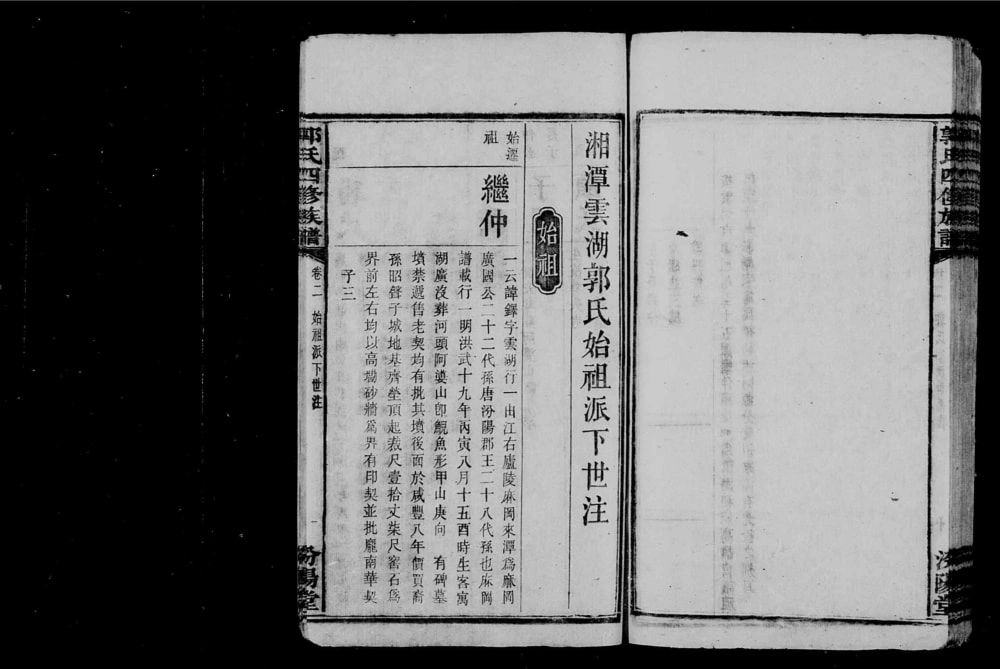 郭氏四修族譜
汾陽堂
湘潭雲湖郭氏始祖派下世注
始祖
始遷
祖
繼仲
一云諱鐸字雲湖行一由江右廬陵麻岡來潭爲麻岡
廣國公二十二代孫唐汾陽郡王二十八代孫也麻岡
譜載行一明洪武十九年丙寅八月十五酉時生客寓
湖廣沒葬河頭阿婆山卽鯢魚形甲山庚向 有碑墓
墳禁遞售老契均有批其墳後面於咸豐八年價買裔
孫昭聲子城地基齊塋頂起裁尺壹拾丈柴尺窖石爲
界前左右均以高磡砂牆爲界有印契並批龐南華契
子三
郭氏四修族譜
卷二 始祖派下世注
一
汾陽堂